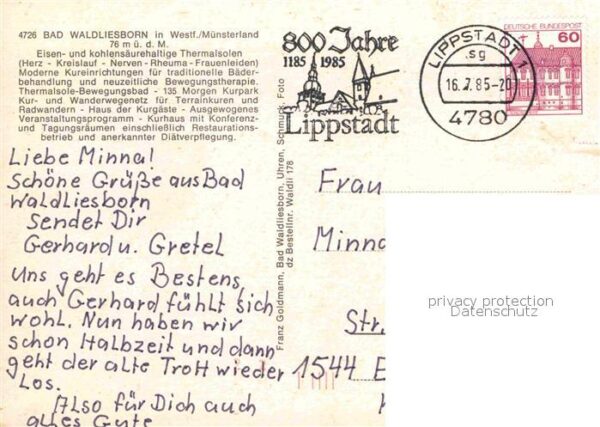 4726 BAD WALDLIESBORN in Westf./Münsterland
76 m ü. d. M.
Eisen- und kohlensäurehaltige Thermalsolen
(Herz - Kreislauf - Nerven - Rheuma - Frauenleiden)
Moderne Kureinrichtungen für traditionelle Bäder-
behandlung und neuzeitliche Bewegungstherapie.
Thermalsole-Bewegungsbad - 135 Morgen Kurpark
Kur- und Wanderwegenetz für Terrainkuren und
Radwandern - Haus der Kurgäste - Ausgewogenes
Veranstaltungsprogramm - Kurhaus mit Konferenz-
und Tagungsräumen einschließlich Restaurations-
betrieb und anerkannter Diätverpflegung.
Liebe Minna!
Schöne Grüße aus Bad
Waldliesborn
Sendet Dir
Gerhard u. Gretel
Uns geht es Bestens,
auch Gerhard fühlt sich
wohl. Nun haben wir
schon Halbzeit und dann
geht der alte Trott wieder
Los.
Also für Dich auch
alles Gute
Franz Goldmann, Bad Waldliesborn, Uhren, Schmuck, Foto
dz Bestellnr. Waldli 178
800 Jahre
1185 1985
Lippstadt
LIPPSTADT 1
sg
16.7.85-20
4780
DEUTSCHE BUNDESPOST
60
Frau
Minna
Str.
1544
privacy protection
Datenschutz